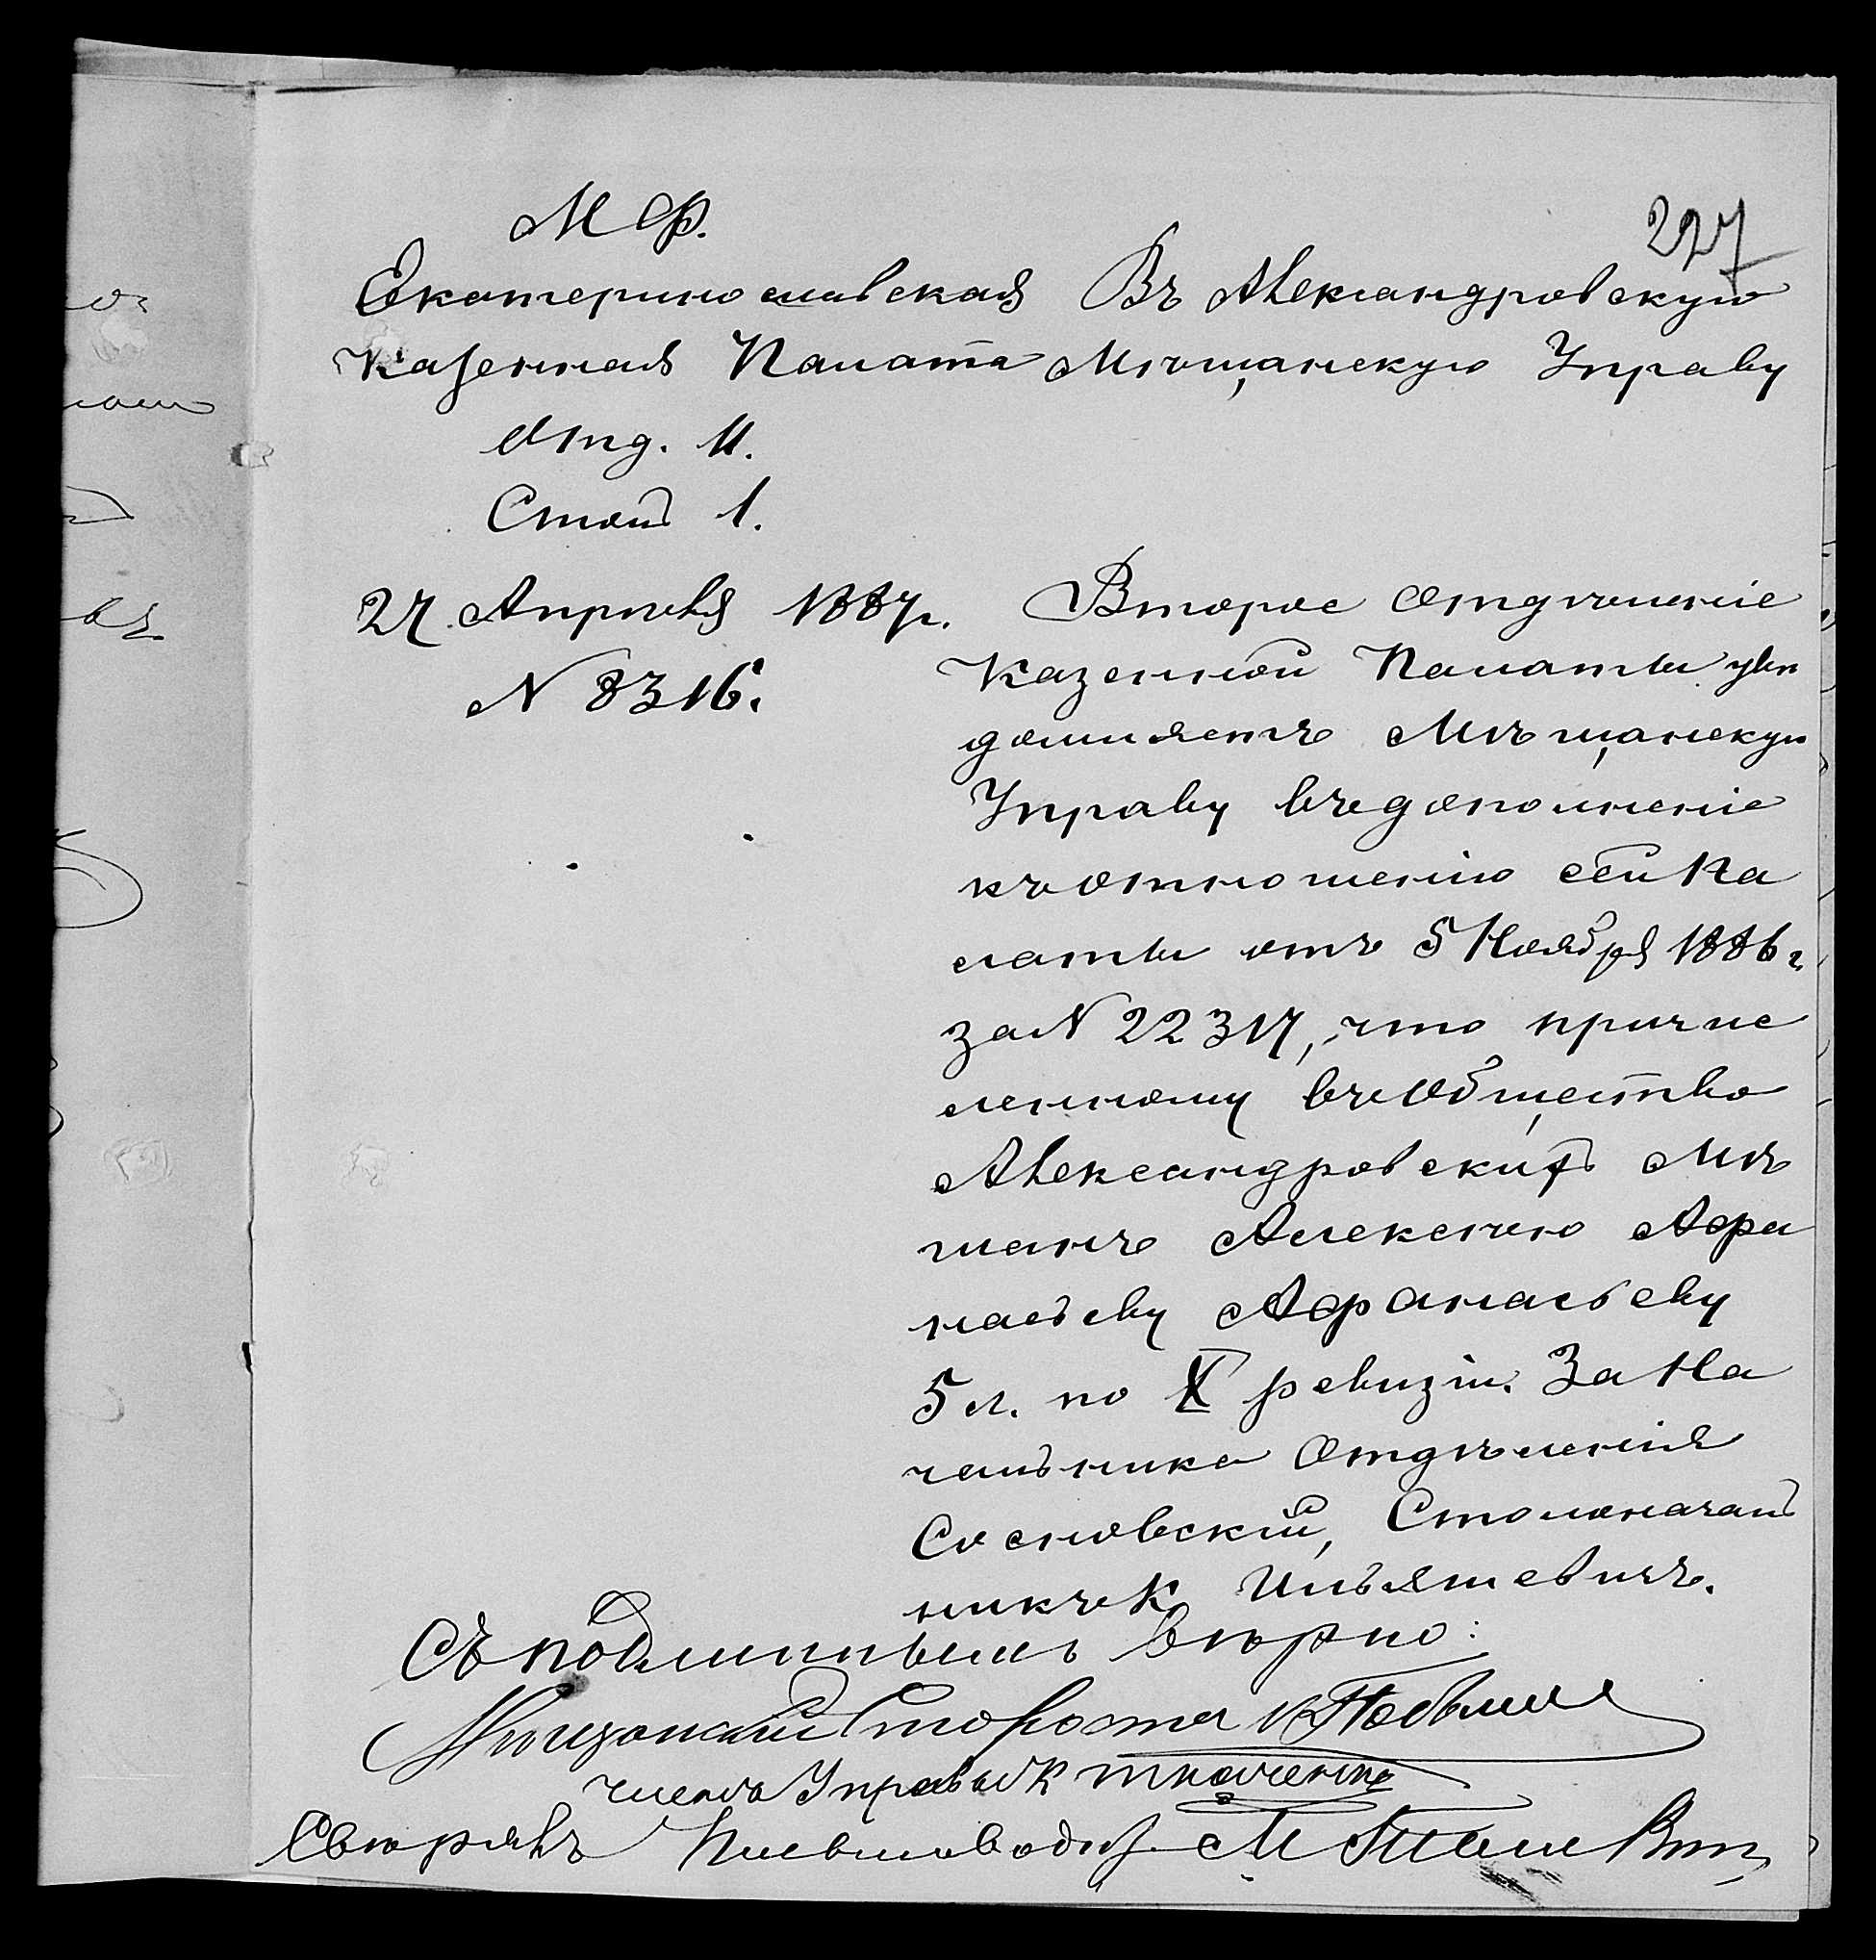 М Ф.
227
Екатеринославская
Казенная Палата
Отд. II.
Столъ 1.
27 Апрѣля 1887 г.
N 8316.
Въ Александровскую
Мѣщанскую Управу
Второе Отдѣленіе
Казенной Палаты увѣ
домляетъ Мѣщанскую
Управу въ дополненіе
къ отношенію сей Па
латы отъ 5 Ноября 1886 г.
за N 22317, что причис
ленному въ Общество
Александровскихъ Мѣ
щанъ Алексѣю Афа
насьеву Афанасьеву
5 л. по X ревизіи. За На
чальника Отдѣленія
Сосновскій, Столоначаль
никъ К. Ильяшевичъ.
Съ подлиннымъ вѣрно:
Мѣщанскій Староста
членъ Управы К Ткаченко
Свѣрялъ Письмоводи. М